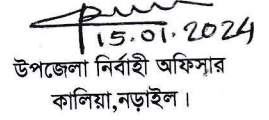 15.01.2024
উপজেলা নির্বাহী অফিসার
কালিয়া,নড়াইল।